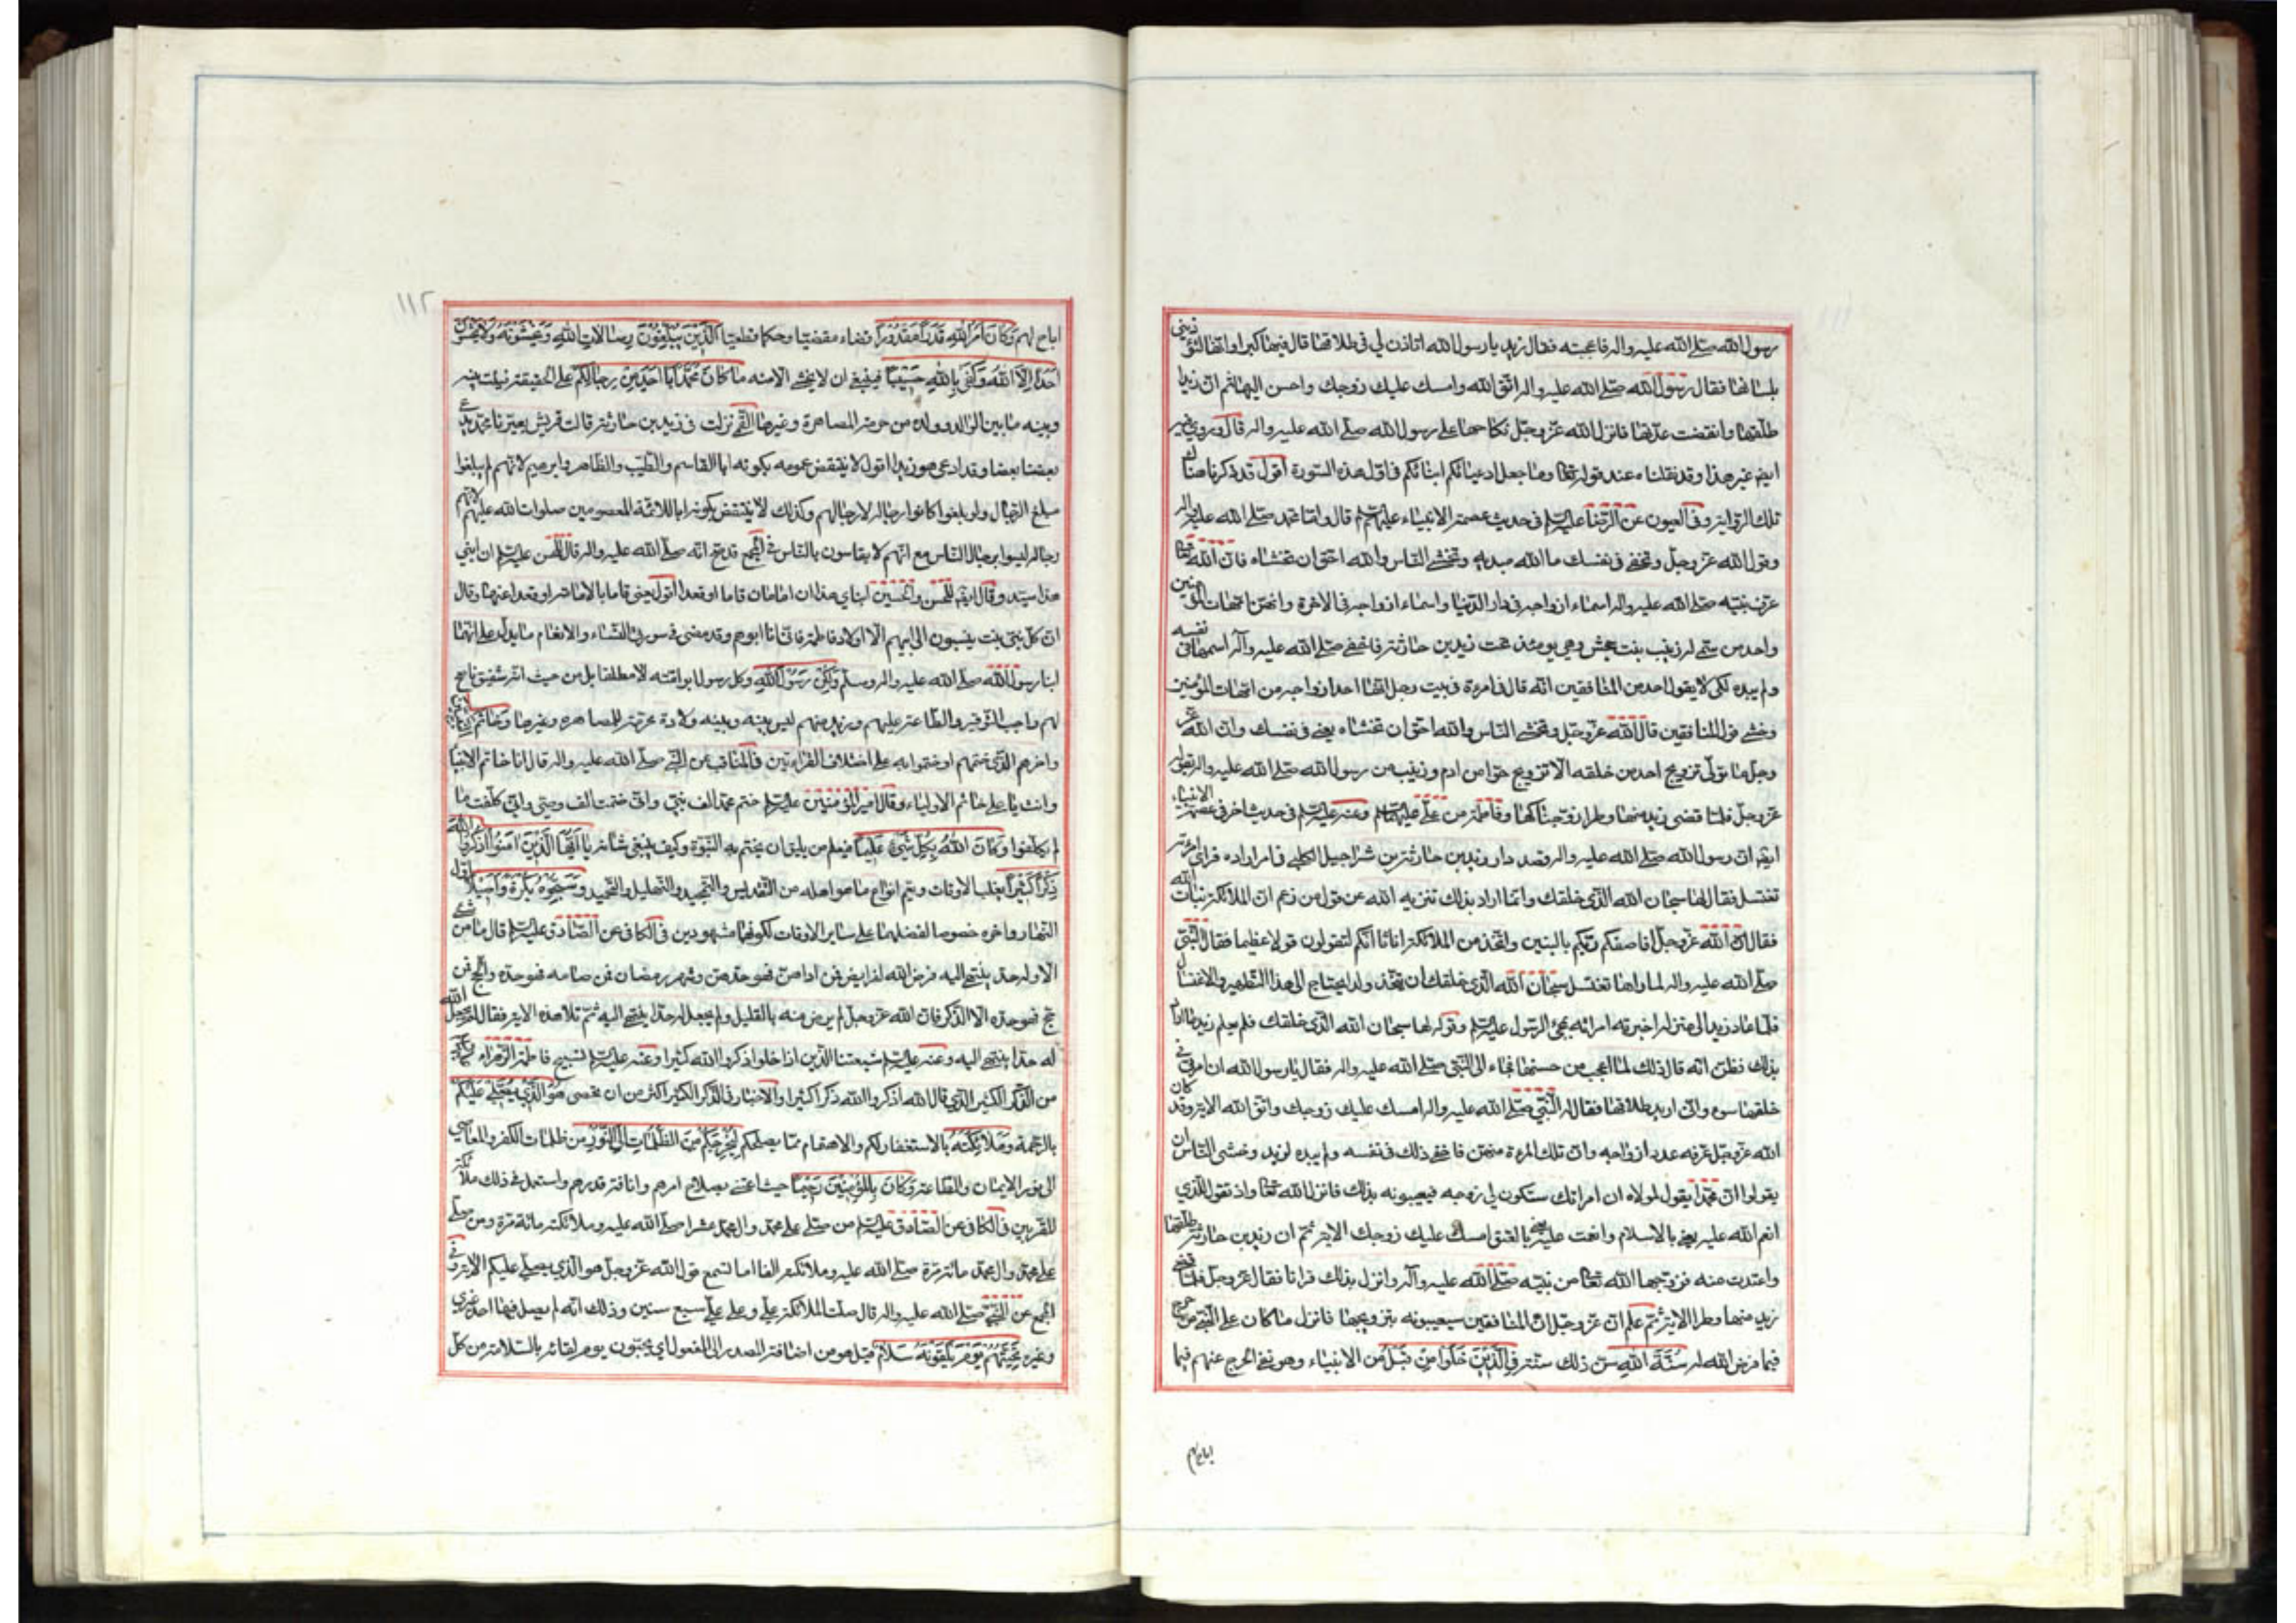 رسول الله صلى الله عليه واله فاعجبته فقال زيد يا رسول الله اتاذن لي في طلاقها قال فيها كبرا وانها لتؤذيني
بلسانها فقال رسول الله صلى الله عليه واله اتق الله وامسك عليك زوجك واحسن اليها ثم ان زيدا
طلقها وانقضت عدتها فانزل الله عز وجل نكاحها على رسول الله صلى الله عليه واله قال وروي فيه
ايض غير هذا وقد نقلناه عند قوله تعا وما جعل ادعيائكم ابنائكم في اول هذه السورة اقول قد ذكرنا هناك
تلك الرواية وفي العيون عن الرضا عليه السلم في حديث عصمة الانبياء عليهم السلم قال واما محمد صلى الله عليه واله
وقول الله عز وجل وتخفي في نفسك ما الله مبديه وتخشى الناس والله احق ان تخشاه فان الله تعا
عرف نبيه صلى الله عليه واله اسماء ازواجه في دار الدنيا واسماء ازواجه في الاخرة وانهن امهات المؤمنين
واحد من سمي له زينب بنت جحش وهي يومئذ تحت زيد بن حارثة فاخفى صلى الله عليه وآله اسمها في نفسه
ولم يبده لكي لا يقول احد من المنافقين انه قال في امرءة في بيت رجل انها احد ازواجه من امهات المؤمنين
وخشي قول المنافقين قال الله عز وجل وتخشى الناس والله احق ان تخشاه يعني في نفسك وان الله عز
وجل ما تولى تزويج احد من خلقه الا تزويج حوا من ادم وزينب من رسول الله صلى الله عليه واله بقوله
عز وجل فلما قضى زيد منها وطرا زوجناكها وفاطمة من علي عليهما السلم وعنه عليه السلم في حديث اخر في عصمة الانبياء
ايض ان رسول الله صلى الله عليه واله قصد دار زيد بن حارثة بن شراحيل الكلبي في امر اراده فراى امرءته
تغتسل فقال لها سبحان الله الذي خلقك وانما اراد بذلك تنزيه الله عن قول من زعم ان الملائكة بنات الله
فقال الله عز وجل افاصفكم ربكم بالبنين واتخذ من الملائكة اناثا انكم لتقولون قولا عظيما فقال النبي
صلى الله عليه واله لما راها تغتسل سبحان الله الذي خلقك ان يتخذ ولدا يحتاج الى هذا التطهير والاغتسال
فلما عاد زيد الى منزله اخبرته امرائه بمجئ الرسول عليه السلم وقوله لها سبحان الله الذي خلقك فلم يعلم زيد ما اراد
بذلك فظن انه قال ذلك لما اعجب من حسنها فجاء الى النبي صلى الله عليه واله فقال يا رسول الله ان امرئتي في
خلقها سوء واني اريد طلاقها فقال له النبي صلى الله عليه واله امسك عليك زوجك واتق الله الاية وقد كان
الله عز وجل عرفه عدد ازواجه وان تلك المرءة منهن فاخفى ذلك في نفسه ولم يبده لزيد وخشى الناس ان
يقولوا ان محمدا يقول لمولاه ان امراتك ستكون لي زوجه فيعيبونه بذلك فانزل الله تعا واذ تقول للذي
انعم الله عليه يعني بالاسلام وانعمت عليه يعني بالعتق امسك عليك زوجك الاية ثم ان زيد بن حارثة طلقها
واعتدت منه فزوجها الله تعا من نبيه صلى الله عليه وآله وانزل بذلك قرانا فقال عز وجل فلما قضى
زيد منها وطرا الاية ثم علم ان عز وجل ان المنافقين سيعيبونه بتزويجها فانزل ما كان على النبي من حرج
فيما فرض الله له سنة الله سن ذلك سنة في الذين خلوا من قبل من الانبياء وهو نفي الحرج عنهم فيما
اباح لهم
١١٢
اباح لهم وكان امر الله قدرا مقدورا قضاء مقضيا وحكما قطعيا الذين يبلغون رسالات الله ويخشونه ولا يخشون
احدا الا الله وكفى بالله حسيبا فينبغي ان لا يخشى الا منه ما كان محمد ابا احد من رجالكم على الحقيقة فيثبت بينه
وبينه ما بين الوالد وولده من حرمة المصاهرة وغيرها القمي نزلت في زيد بن حارثة قالت قريش يعيرنا محمد يدعي
بعضنا بعضا وقد ادعى هو زيدا اقول لا ينتقض عمومه بكونه ابا القاسم والطيب والطاهر وابرهيم لانهم لم يبلغوا
مبلغ الرجال ولو بلغوا كانوا رجاله لا رجالهم وكذلك لا ينتقض بكونه ابا للائمة المعصومين صلوات الله عليهم لانهم
رجاله ليسوا برجال الناس مع انهم لا يقاسون بالناس في المجمع قد صح انه صلى الله عليه واله قال للحسن عليه السلم ان ابني
هذا سيد وقال ايض للحسن والحسين ابناي هذان امامان قاما او قعدا اقول يعني قاما بالامامة او قعدا عنها وقال
ان كل بني بنت ينسبون الى ابيهم الا اولاد فاطمة فاني انا ابوهم وقد مضى في سورتي النساء والانعام ما يدل على انهما
ابنا رسول الله صلى الله عليه واله وسلم ولكن رسول الله وكل رسول ابو امته لا مطلقا بل من حيث انه شفيق ناصح
لهم واجب التوقير والطاعة عليهم وزيد منهم ليس بينه وبينه ولادة محرمة للمصاهرة وغيرها وخاتم النبيين
واخرهم الذي ختمهم او ختموا به على اختلاف القرائتين في المناقب عن النبي صلى الله عليه واله قال انا خاتم الانبياء
وانت يا علي خاتم الاولياء وقال امير المؤمنين عليه السلم ختم محمد الف نبي واني ختمت الف وصي واني كلفت ما
لم يكلفوا وكان الله بكل شئ عليما فيعلم من يليق ان يختم به النبوة وكيف ينبغي شانه يا ايها الذين امنوا اذكروا الله
ذكرا كثيرا يغلب الاوقات ويعم انواع ما هو اهله من التقديس والتمجيد والتهليل والتحميد وسبحوه بكرة واصيلا اول
النهار واخره خصوصا لفضلهما على ساير الاوقات لكونهما مشهودين في الكافي عن الصادق عليه السلم قال ما من شئ
الا وله حد ينتهي اليه فرض الله الفرايض فمن اداهن فهو حدهن وشهر رمضان فمن صامه فهو حده والحج فمن
حج فهو حده الا الذكر فان الله عز وجل لم يرض منه بالقليل ولم يجعل له حدا ينتهي اليه ثم تلا هذه الاية فقال لم يجعل الله
له حدا ينتهي اليه وعنه عليه السلم شيعتنا الذين اذا خلوا ذكروا الله كثيرا وعنه عليه السلم تسبيح فاطمة الزهراء
من الذكر الكثير الذي قال الله اذكروا الله ذكرا كثيرا والاخبار في الذكر الكثير اكثر من ان تحصى هو الذي يصلي عليكم
بالرحمة وملائكته بالاستغفار لكم والاهتمام بما يصلحكم ليخرجكم من الظلمات الى النور من ظلمات الكفر والمعاصي
الى نور الايمان والطاعة وكان بالمؤمنين رحيما حيث اعتنى بصلاح امرهم وانافة قدرهم واستعمل في ذلك ملائكته
المقربين في الكافي عن الصادق عليه السلم من صلى على محمد وال محمد عشرا صلى الله عليه وملائكته مائة مرة ومن صلى
على محمد وال محمد مائة مرة صلى الله عليه وملائكته الفا اما تسمع قول الله عز وجل هو الذي يصلي عليكم الاية وفي
المجمع عن النبي صلى الله عليه واله قال صلت الملائكة علي وعلى علي سبع سنين وذلك انه لم يصل فيها احد غيري
وغيره تحيتهم يوم يلقونه سلام قيل هو من اضافة المصدر الى المفعول اي يحيون يوم لقائه بالسلامة من كل